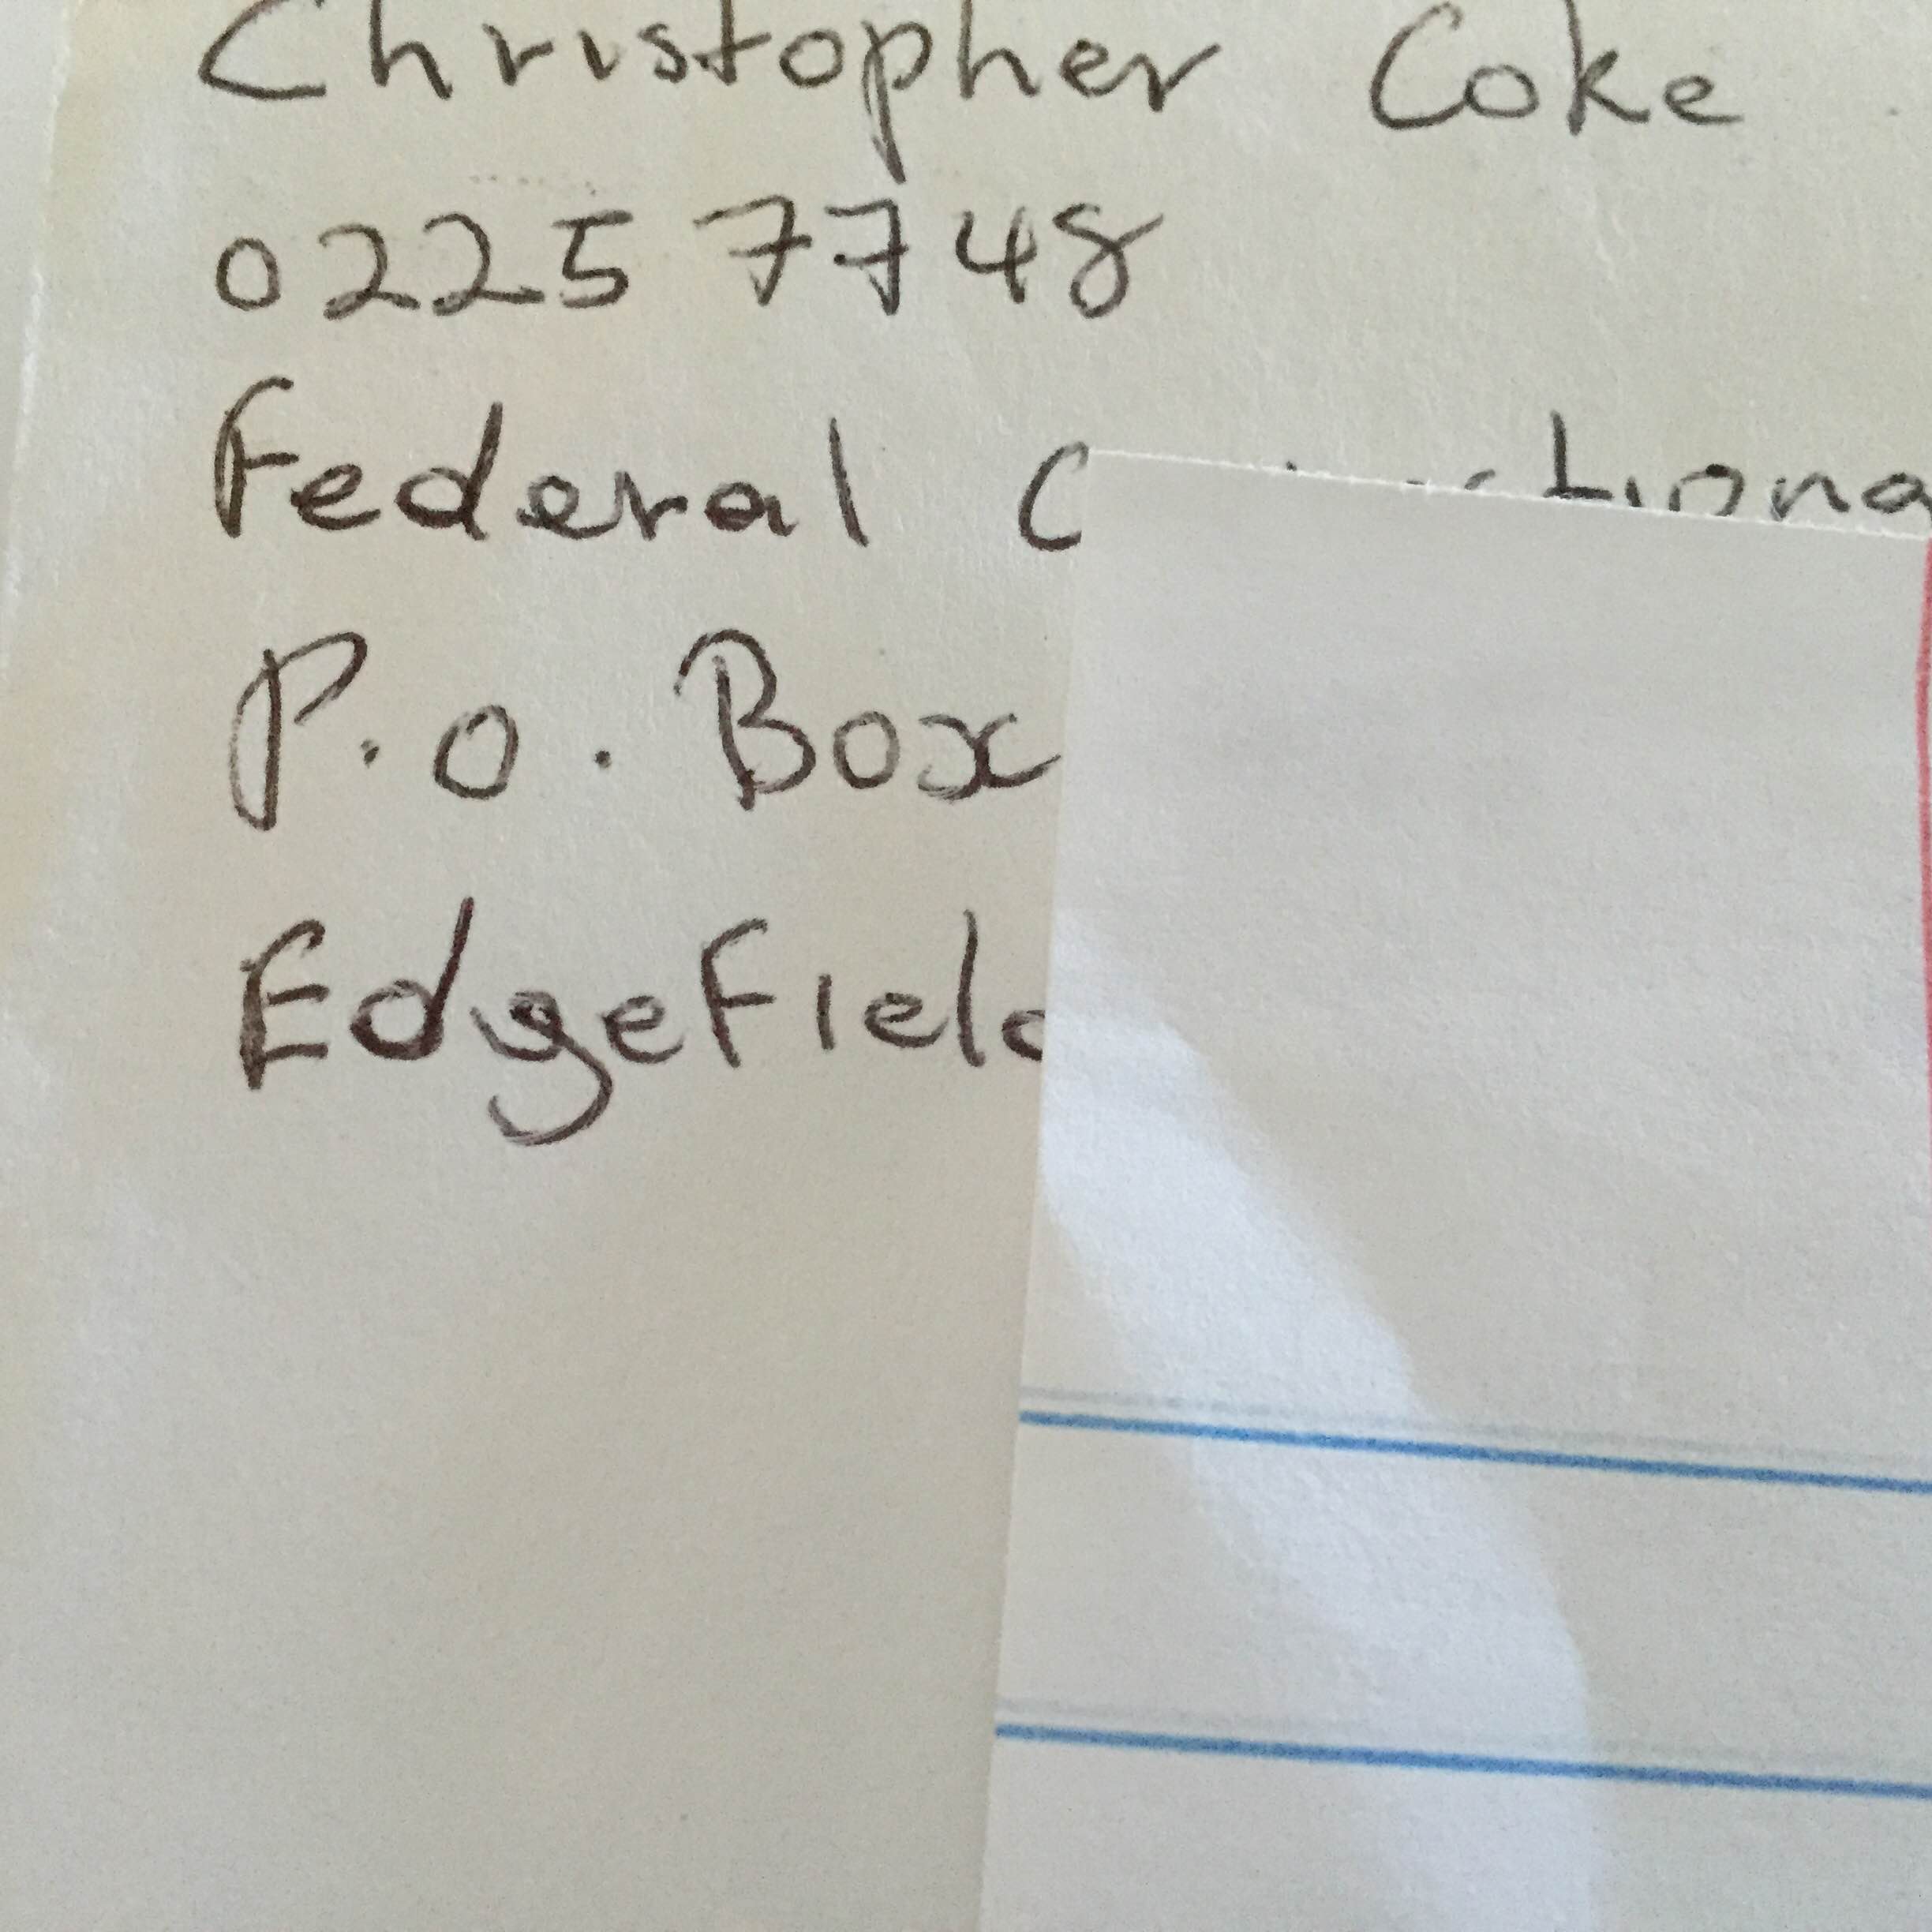 Christopher Coke
02257748
Federal
P.O. Box
Edgefield